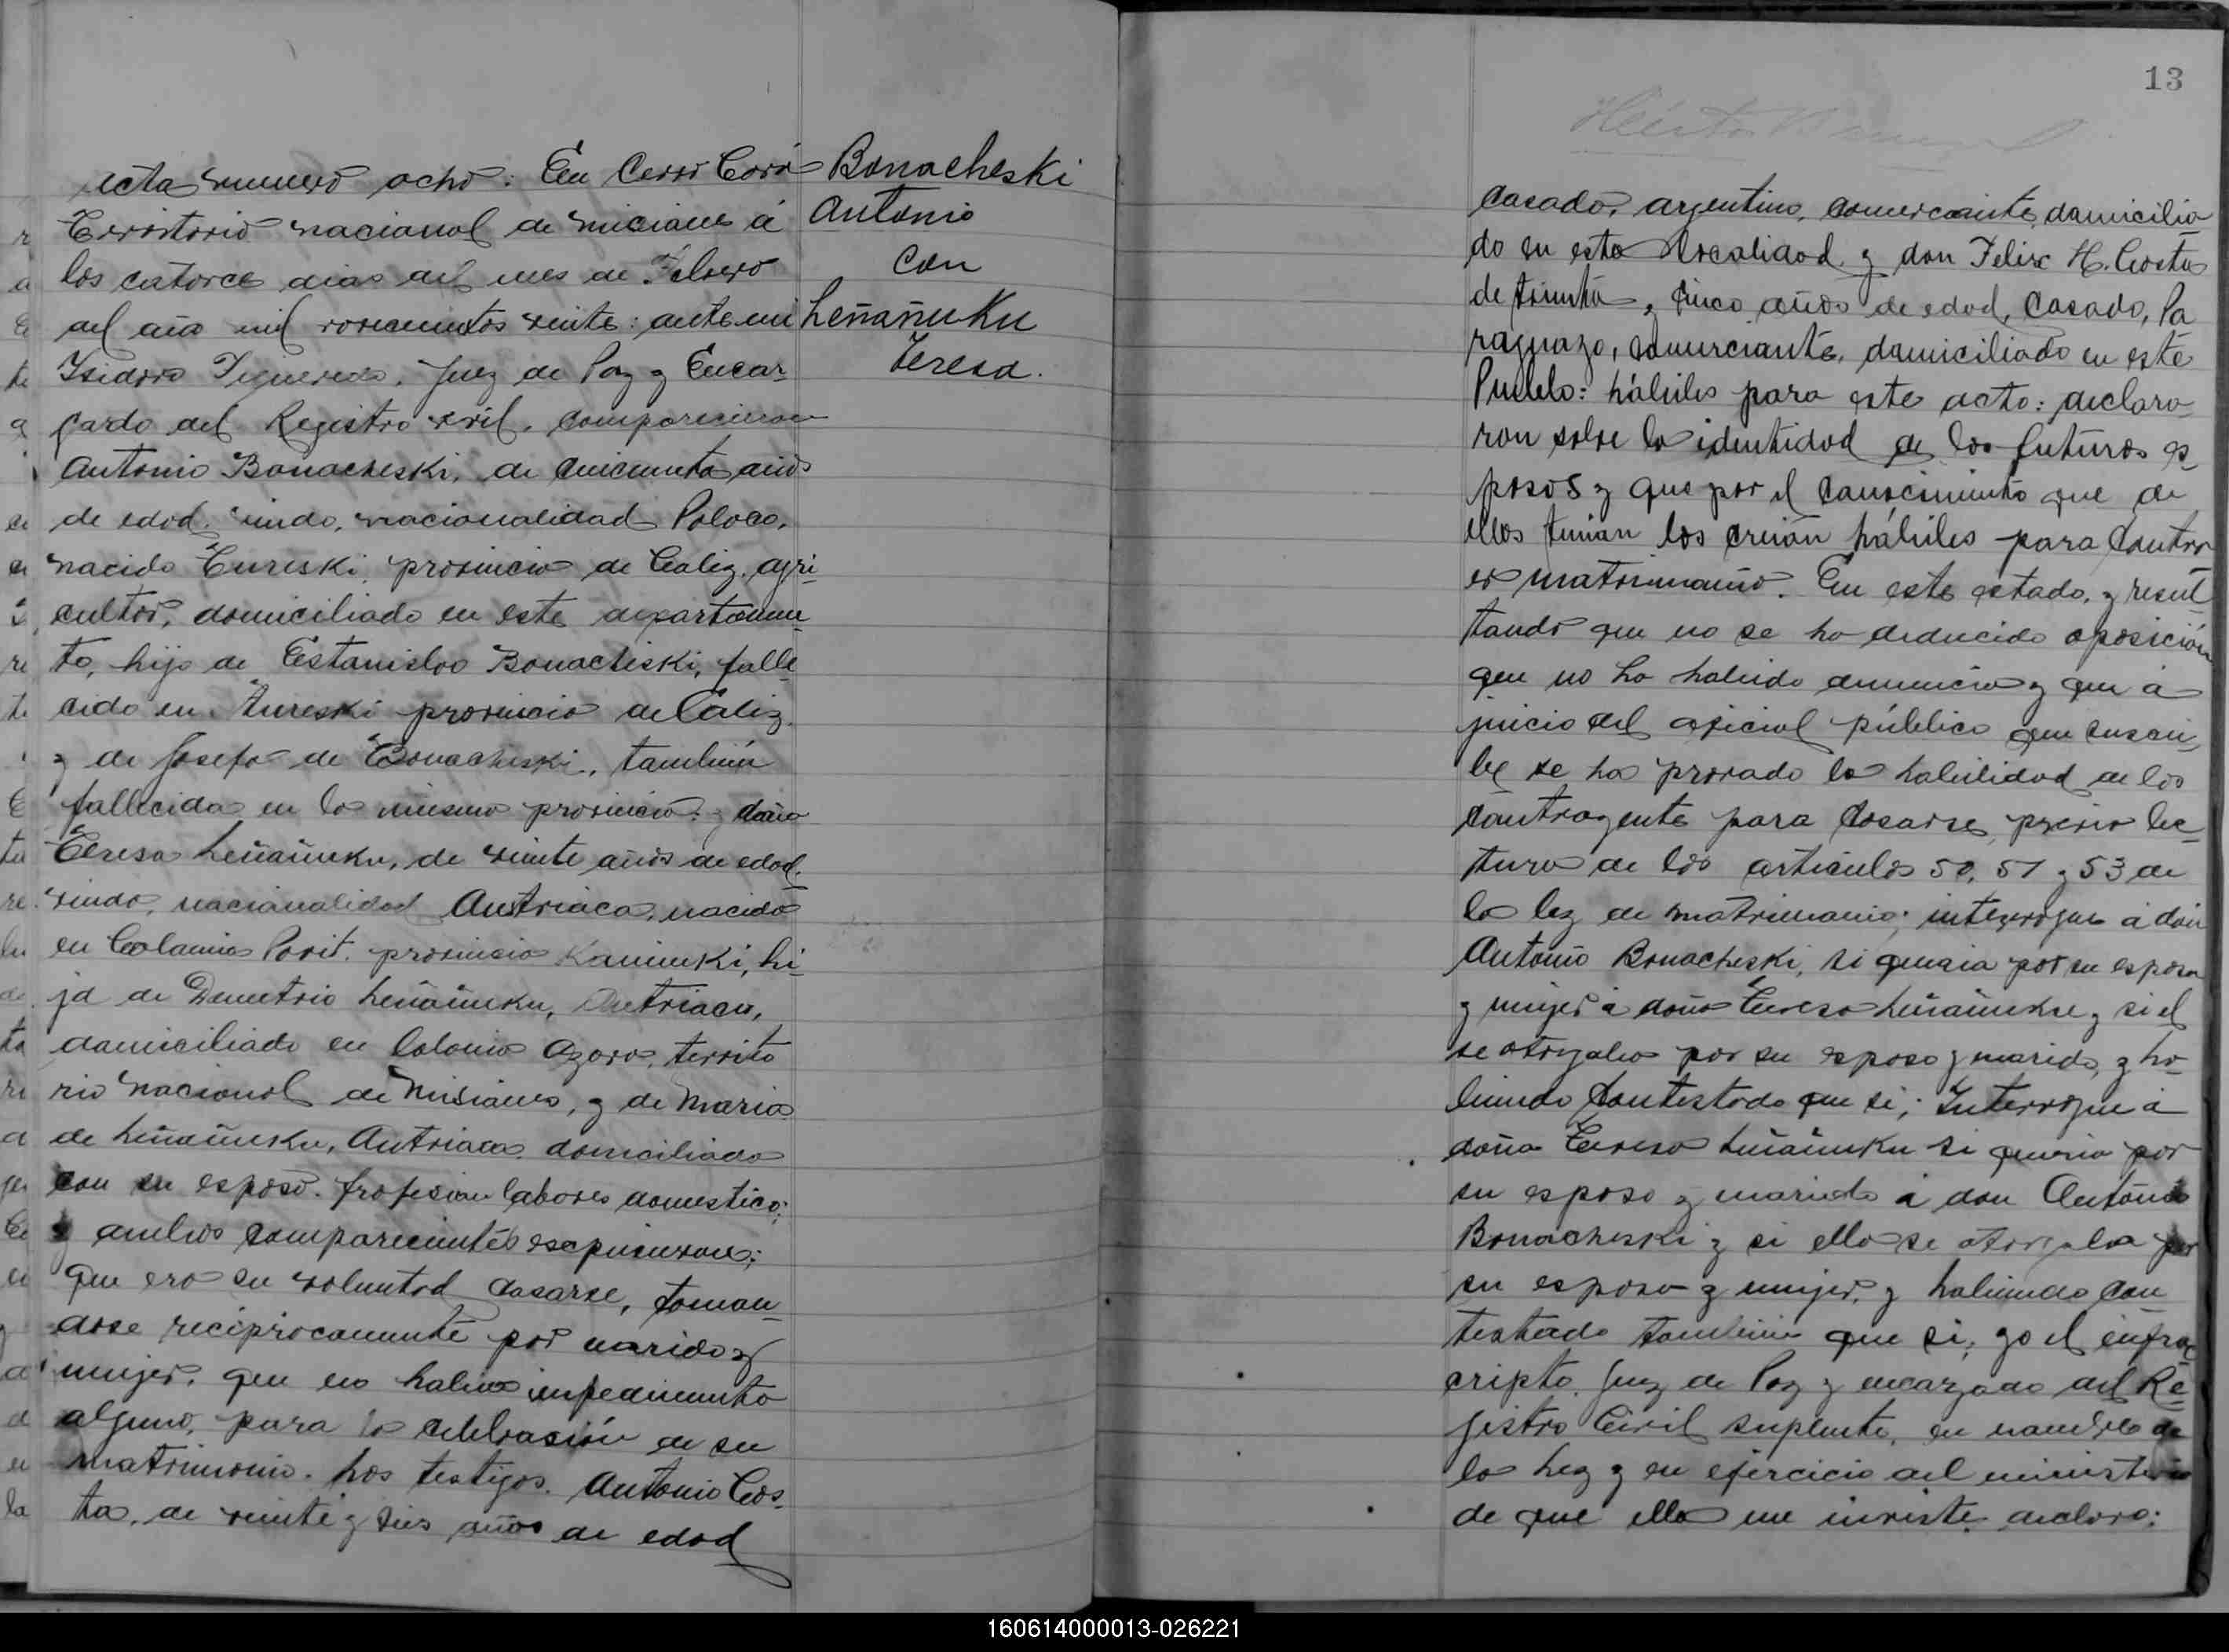 Acta numero ocho: En Cerro Corá
Territorio nacional de Misiones á
los catorce dias del mes de Febrero
del año mil novecientos veinte: ante mi
Isidoro Figueredo, Juez de Paz y Encar-
gado del Registro Civil, comparecieron
Antonio Bonacheski, de cincuenta años
de edad, viudo, nacionalidad Polaco,
nacido Tureski, provincia de Caliz, agri-
cultor, domiciliado en este departamen-
to, hijo de Estanislao Bonacheski, falle
cido en Tureski provincia de Caliz,
y de Josefa de Bonacheski, también
fallecida en la misma provincia: y doña
Teresa Leñañuku, de veinte años de edad,
viuda, nacionalidad Autriaca, nacida
en Colamia provincia Kaminki, hi-
ja de Demetrio Leñañuku, Autriaco,
domiciliado en Colonia Azara, territo
rio nacional de Misiones, y de Maria
de Leñañuku, Autriaca domiciliada
con su esposo. Profesion labores domestica;
y ambos comparecientes espusieron;
que era su voluntad casarse, toman-
dose reciprocamente por marido y
mujer, que no habia impedimento
alguno, para la celebrasión de su
matrimonio. Los testigos. Antonio Cos-
ta, de veinte y seis años de edad
Bonacheski
Antonio
Con
Leñañuku
Teresa.
13
casado, argentino, comerciante, domicilia-
do en esta localidad y don Felix H. Costa
de treinta y cinco años de edad, casado, Pa
raguayo, comerciante, domiciliado en este
Pueblo: hábiles para este acto: declara-
ron sobre la identidad de los futuros es-
posos y que por el conocimiento que de
ellos tenian los creian hábiles para contra
er matrimonio. En este estado, y resul-
tando que no se ha deducido oposición
que no ha habido denuncia y que á
juicio del oficial público que suscri-
be se ha provado la habilidad de los
contrayente para casarse, previa lec-
tura de los articulos 50, 51 y 53 de
la ley de matrimonio; interrogue á don
Antonio Bonacheski, si queria por su esposa
y mujer á doña Teresa Leñañuku y si el
se otorgaba por su esposo y marido, y ha-
biendo contestado que si; Interrogue á
doña Teresa Leñañuku si queria por
su esposo y marido á don Antonio
Bonacheski y si ella se otorgaba por
su esposa y mujer, y habiendo con
testado también que si; yo el infra-
cripto Juez de Paz y encargado del Re-
gistro Civil suplente, en nombre de
la Ley y en ejercicio del ministerio
de que ella me inviste declaro:
160614000013-026221